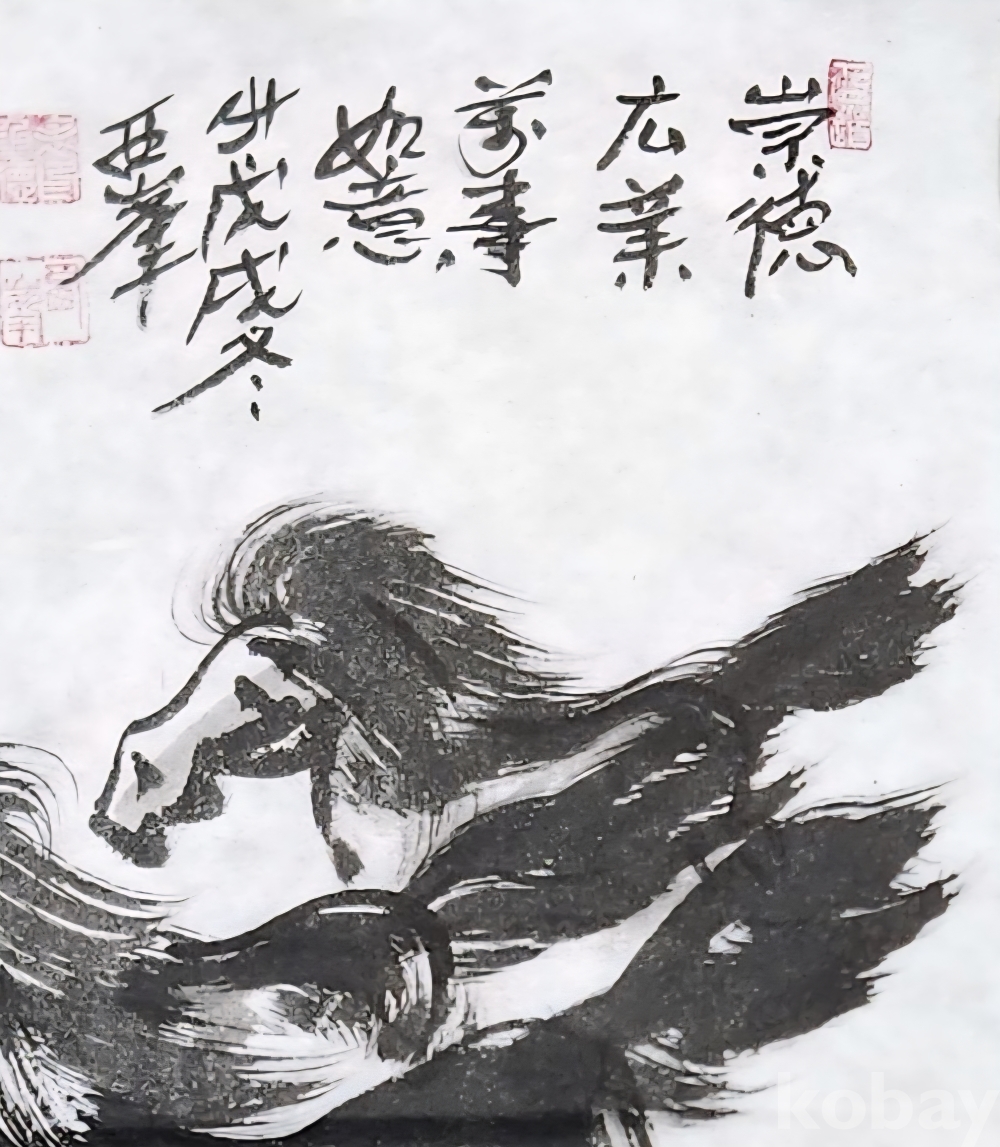 崇德
広業
萬事
如意
戊戌冬
亞峯
kobay